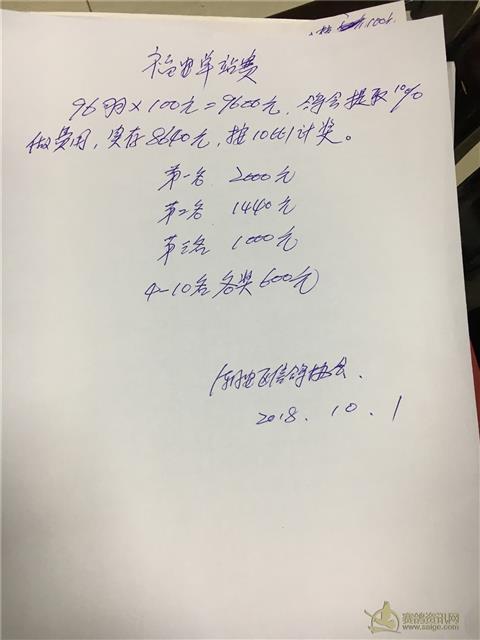 100t.
单站赛
96羽×100元=9600元,鸽会提取10%
做费用,实存8640元,按10取1计奖。
第一名 2000元
第二名 1440元
第三名 1000元
4-10名各奖600元
信鸽协会.
2018.10.1
赛鸽资讯网
www.saige.com